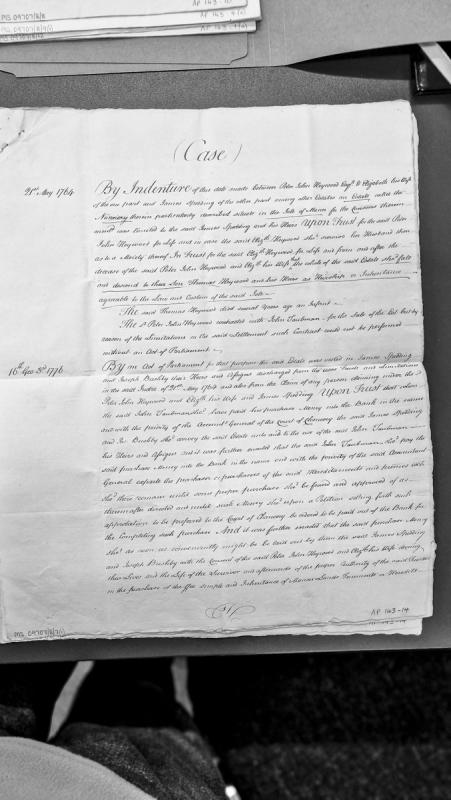 AP 143-10
MS 09707/8/8
AP 143-9(2)
MS 09707/8/9(1)
AP 143-9(1)
(Case)
21st May 1764
By Indenture of this date made between Peter John Heywood Esqr. & Elizabeth his Wife
of the one part and James Spedding of the other part among other Estates an Estate called the
Nunnery therein particularly described situate in the Isle of Mann for the Considn therein
mentd was limited to the said James Spedding and his Heirs Upon Trust for the said Peter
John Heywood for life and in case the said Elizth Heywood shod survive her Husband then
as to a Moiety thereof In Trust for the said Elizth Heywood for life and from and after the
decease of the said Peter John Heywood and Elizth his Wife the whole of the said Estate shod fall
and descend to their Son Thomas Heywood and his Heirs as Heirship or Inheritance
agreeable to the Law and Custom of the said Isle
The said Thomas Heywood died several Years ago an Infant
The sd Peter John Heywood contracted with John Taubman for the Sale of the Est but by
reason of the Limitations in the said Settlement such Contract could not be performed
without an Act of Parliament
16th Geo 3d 1776
By an Act of Parliament for that purpose the said Estate was vested in James Spedding
and Joseph Brushby their Heirs and Assigns discharged from the uses Trusts and Limitations
in the said Indre of 21st May 1764 and also from the Claim of any person claiming under the
Peter John Heywood and Elizth his Wife and James Spedding Upon Trust that when
the said John Taubman shod have paid his purchase Money into the Bank in the name
and with the privity of the Accomt General of the Court of Chancery the said James Spedding
and Jos Brushby shod convey the said Estate unto and to the use of the said John Taubman
his Heirs and Assigns and it was further enacted that the said John Taubman shod pay the
said purchase Money into the Bank in the name and with the privity of the said Accomtant
General except the purchase or purchases of the said Hereditaments and premes
shod there remain until some proper purchase shod be found and approved of as
thereinafter directed and until such Money shod upon a Petition setting forth such
approbation to be preferred to the Court of Chancery be ordered to be paid out of the Bank for
the Compleating such purchase And it was further enacted that the said purchase Money
shod as soon as conveniently might be be laid out by them the said James Spedding
and Joseph Brushby with the Consent of the said Peter John Heywood and Elizth his Wife during
their Lives and the Life of the Survivor and afterwards of the proper Authority of the said Trustees
in the purchase of the Fee simple and Inheritance of Manors Lands Tenements or Heredits
AP 143-14
MS 09707/8/7(1)